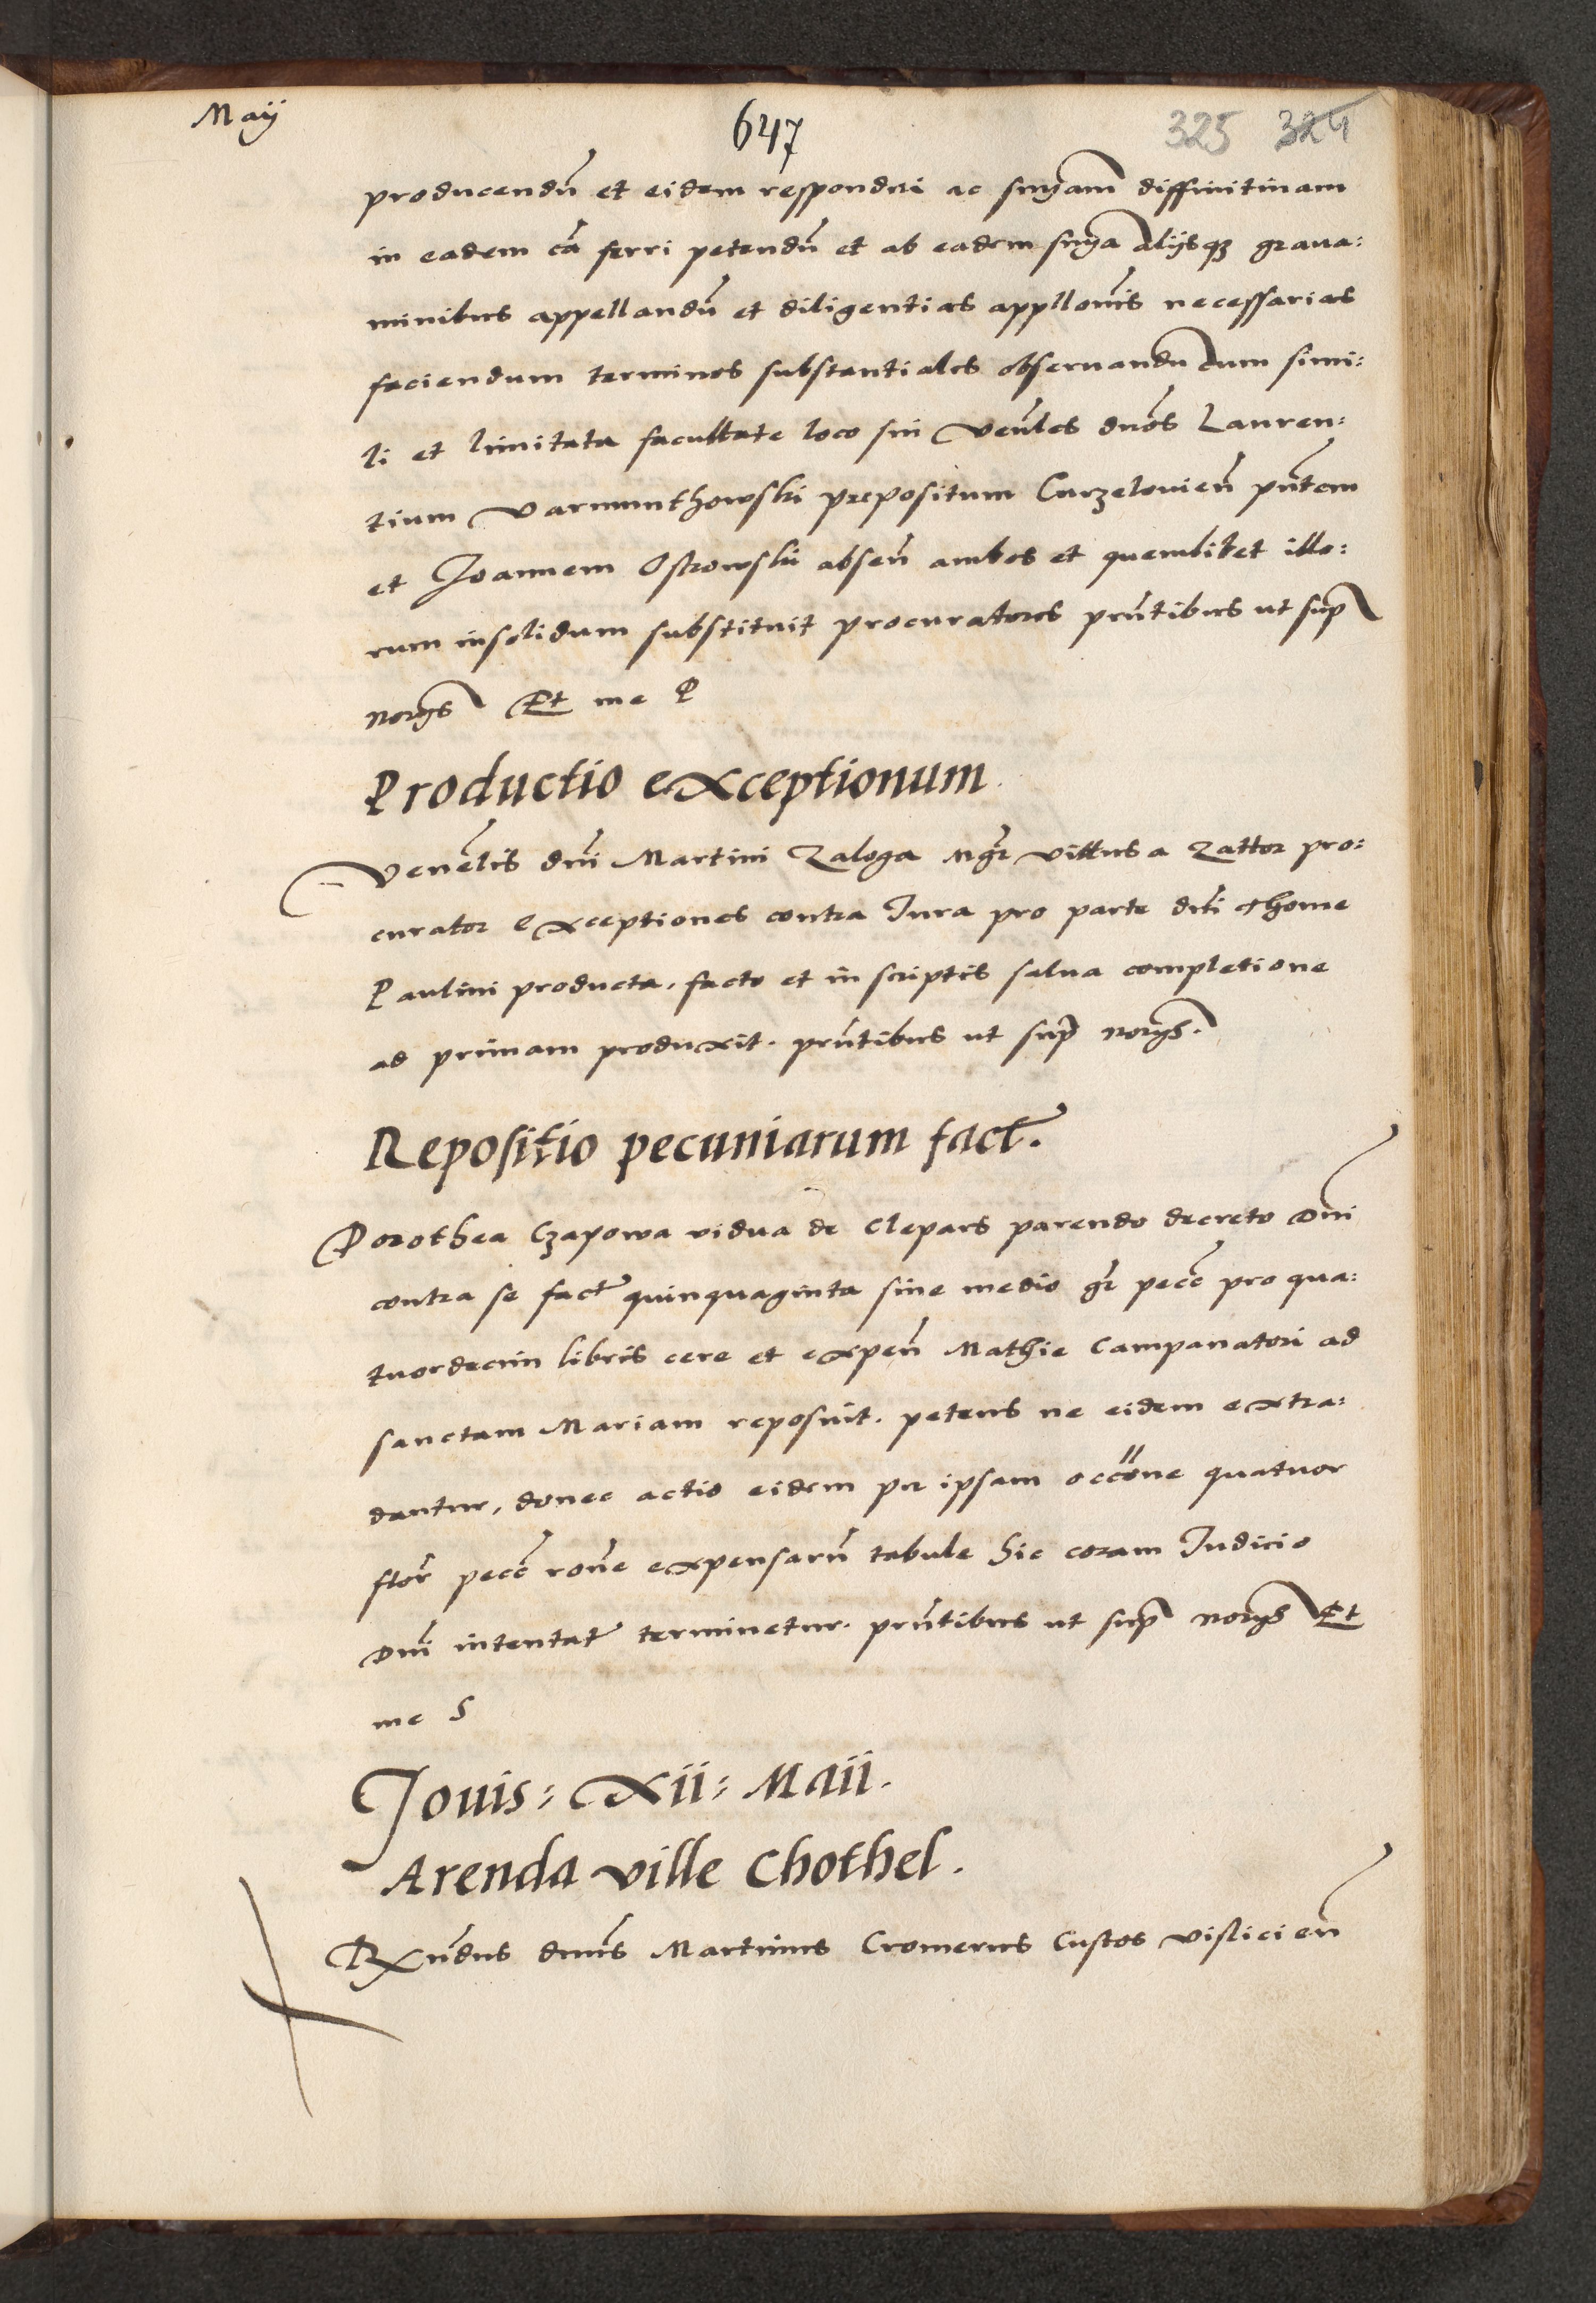 Maij
647
325 324
producendũ et eidem responderi ac sñyam diffinitiuam
in eadem cã ferri petendũ et ab eadem sñya alijsqꝫ graua:
minibus appellandũ et diligentias appllonĩs necessarias
faciendum terminos substantiales obseruandũ cum simi:
li et limitata facultate loco sui Veñles dnõs Lauren:
tium Varmunthowski prepositum Curzelouieñ pñtem
et Joannem Ostrowski abseñ ambos et quemlibet illo:
rum insolidum substituit procuratores pñtibus ut sup̃
norys Et me P
Productio exceptionum
Veneĩlis dñi Martini Zaloga Mgr̃ Vittus a Zattor pro:
curator Exceptiones contra Iura pro parte dc̃ti Thome
Paulini producta, facto et in scriptis salua completione
ad primam produxit. pñtibus ut sup̃ norys.
Repositio pecuniarum fact̃.
Dorothea Czapowa vidua de Clepars parendo decreto Dñi
contra se fact̃ quinquaginta sine medio gr̃ pecc̃ pro qua:
tuordecim libris cere et expeñ Mathie Campanatori ad
sanctam Mariam reposuit. petens ne eidem extra:
dantur, donec actio eidem per ipsam occõne quatuor
flor̃ pecc̃ rone expensarũ tabule hic coram Iudicio
Dñi intentat̃ terminetur. pñtibus ut sup̃ norys Et
me S
Jouis: Xii: Maii.
Arenda ville Chothel.
Rx̃ndus dnus Martinus Cromerus Custos Vislicieñ